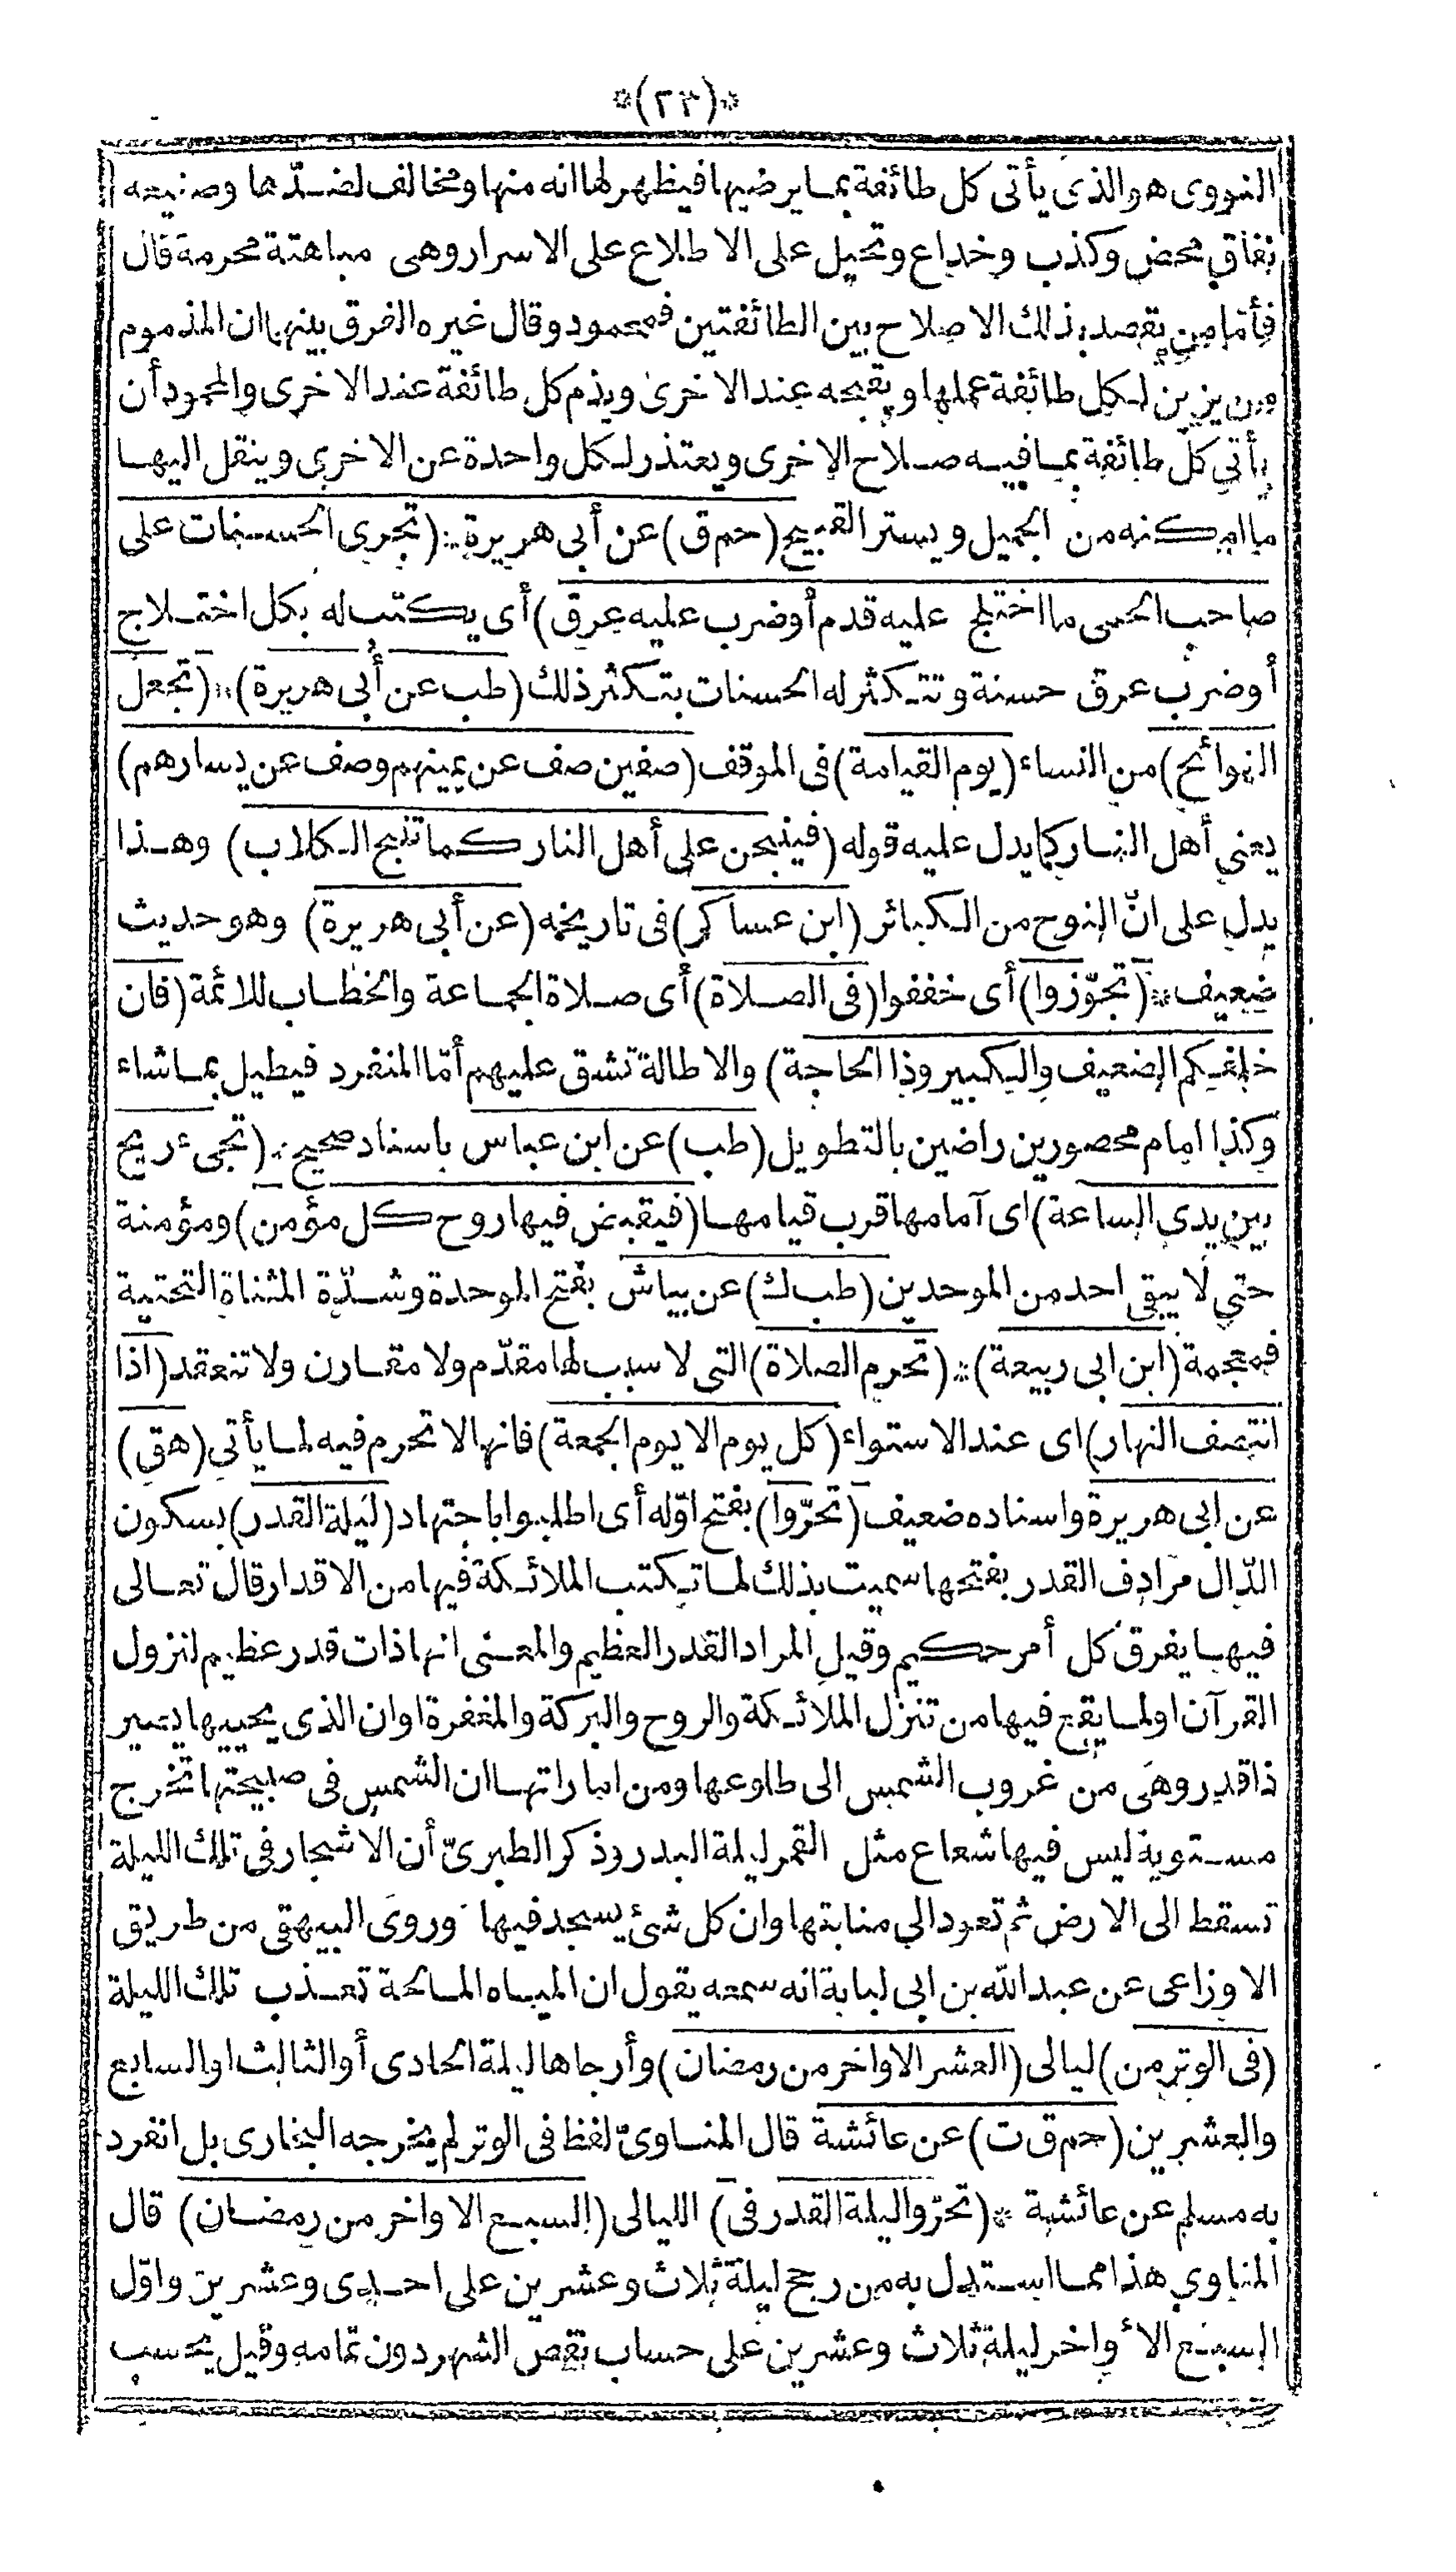 *(٢٣)*
النووى هو الذى يأتى كل طائفة بما يرضيها فيظهر لها انه منها ومخالف لضدّها وصنيعه
نفاق محض وكذب وخداع وتحيل على الاطلاع على الاسرار وهى مباهتة محرمة قال
فأمّا من يقصد بذلك الاصلاح بين الطائفتين فمحمود وقال غيره الفرق بينهما ان المذموم
من يزين لكل طائفة عملها ويقبحه عند الاخرى ويذم كل طائفة عند الاخرى والمحمود أن
يأتى كل طائفة بما فيه صلاح الاخرى ويعتذر لكل واحدة عن الاخرى وينقل اليها
ما امكنه من الجميل ويستر القبيح (حم ق) عن أبى هريرة * (تجرى الحسنات على
صاحب الحمى ما اختلج عليه قدم أو ضرب عليه عرق) أى يكتب له بكل اختلاج
أو ضرب عرق حسنة وتتكثر له الحسنات بتكثر ذلك (طب عن أبى هريرة) * (تجعل
النوائح) من النساء (يوم القيامة) فى الموقف (صفين صف عن يمينهم وصف عن يسارهم)
يعنى أهل النار كما يدل عليه قوله (فينبحن على أهل النار كما تنبح الكلاب) وهذا
يدل على انّ النوح من الكبائر (ابن عساكر) فى تاريخه (عن أبى هريرة) وهو حديث
ضعيف * (تجوّزوا) أى خففوا (فى الصلاة) أى صلاة الجماعة والخطاب للائمة (فان
خلفكم الضعيف والكبير وذا الحاجة) والاطالة تشق عليهم أمّا المنفرد فيطيل بما شاء
وكذا امام محصورين راضين بالتطويل (طب) عن ابن عباس باسناد صحيح * (تجىء ريح
بين يدى الساعة) اى آمامها قرب قيامها (فيقبض فيها روح كل مؤمن) ومؤمنة
حتى لا يبقى احد من الموحدين (طب ك) عن بياش بفتح الموحدة وشدّة المثناة التحتية
فمعجمة (ابن ابى ربيعة) * (تحرم الصلاة) التى لا سبب لها مقدّم ولا مقارن ولا تنعقد (اذا
انتصف النهار) اى عند الاستواء (كل يوم الا يوم الجمعة) فانها لا تحرم فيه لما يأتى (هق)
عن ابى هريرة واسناده ضعيف (تحرّوا) بفتح اوّله أى اطلبوا باجتهاد (ليلة القدر) بسكون
الدّال مرادف القدر بفتحها سميت بذلك لما تكتب الملائكة فيها من الاقدار قال تعالى
فيها يفرق كل أمر حكيم وقيل المراد القدر العظيم والمعنى انها ذات قدر عظيم لنزول
القرآن او لما يقع فيها من تنزل الملائكة والروح والبركة والمغفرة او ان الذى يحييها يصير
ذا قدر وهى من غروب الشمس الى طلوعها ومن اماراتها ان الشمس فى صبيحتها تخرج
مستوية ليس فيها شعاع مثل القمر ليلة البدر وذكر الطبرىّ أن الاشجار فى تلك الليلة
تسقط الى الارض ثم تعود الى منابتها وان كل شىء يسجد فيها وروى البيهقى من طريق
الاوزاعى عن عبد الله بن ابى لبابة انه سمعه يقول ان المياه المالحة تعذب تلك الليلة
(فى الوتر من) ليالى (العشر الاواخر من رمضان) وأرجاها ليلة الحادى أو الثالث او السابع
والعشرين (حم ق ت) عن عائشة قال المناوىّ لفظ فى الوتر لم يخرجه البخارى بل انفرد
به مسلم عن عائشة * (تحرّوا ليلة القدر فى) الليالى (السبع الاواخر من رمضان) قال
المناوى هذا مما استدل به من رجح ليلة ثلاث وعشرين على احدى وعشرين واوّل
السبع الأواخر ليلة ثلاث وعشرين على حساب نقص الشهر دون تمامه وقيل يحسب